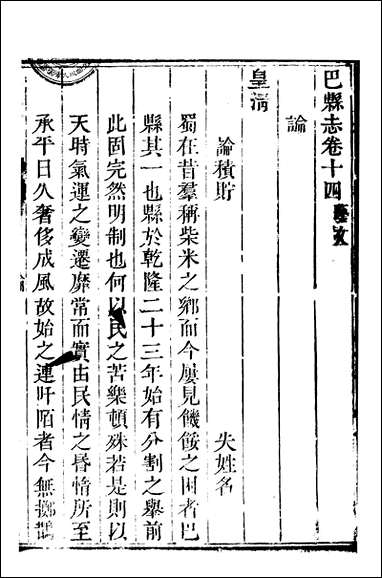 巴縣志卷十四 藝文
論
皇清
論積貯 失姓名
蜀在昔羣稱柴米之鄉而今屢見饑餒之困者巴
縣其一也縣於乾隆二十三年始有分割之舉前
此固完然明制也何以民之苦樂頓殊若是則以
天時氣運之變遷靡常而實由民情之昏惰所至
承平日久奢侈成風故始之連阡陌者今無擲鵲